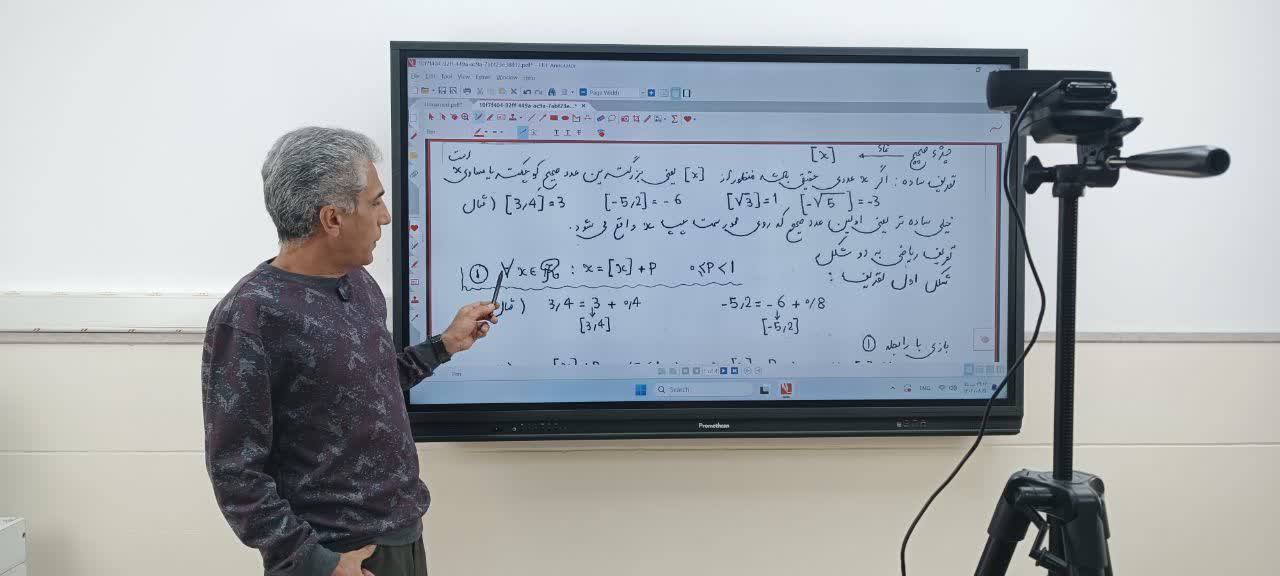 File Edit Tool View Extras Window Help
Page Width
Unnamed.pdf*
Pen
جزء صحیح نماد ← [x]
تعریف ساده: اگر x عددی حقیقی باشد منظور از [x] یعنی بزرگترین عدد صحیح کوچکتر یا مساوی x است
مثال) [3,4]=3 [-5,2]=-6 [√3]=1 [-√5]=-3
خیلی ساده تر یعنی اولین عدد صحیح که روی محور سمت چپ x واقع می شود.
تعریف ریاضی به دو شکل
شکل اول تعریف:
① ∀x∈ℝ : x=[x]+P 0≤P<1
مثال) 3,4 = 3 + 0,4 -5,2 = -6 + 0,8
[3,4] [-5,2]
بازی با رابطه ①
Pen
Search
ENG
Promethean